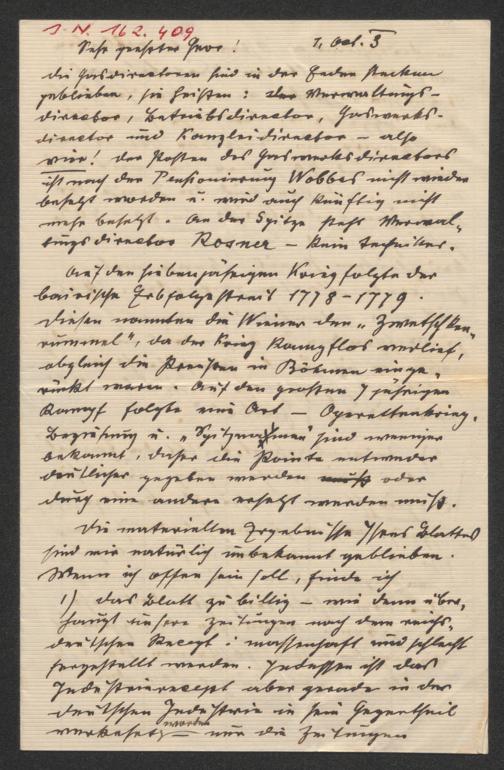 J. N. 162.409
Sehr geehrter Herr! 1. Oct. 3
Die Gasdirectoren sind in der Feder stecken
geblieben, sie heißen: der Verwaltungs-
director, Betriebsdirector, Gaswerks-
director und Kanzleidirector – also
vier! Der Posten des Gaswerksdirectors
ist nach der Pensionierung Wobbes nicht wieder
besetzt worden u. wird auch künftig nicht
mehr besetzt. An der Spitze steht Verwal-
tungsdirector Rosner – kein Techniker.
Auf den siebenjährigen Krieg folgte der
bairische Erbfolgestreit 1778–1779.
Diesen nannten die Wiener den „Zwetschken-
rummel", da der Krieg kampflos verlief,
obgleich die Preußen in Böhmen einge-
rückt waren. Auf den großen 7 jährigen
Kampf folgte eine Art – Operettenkrieg.
Beziehung u. sind weniger
bekannt, daher die Pointe entweder
deutlicher gegeben werden muß oder
durch eine andere ersetzt werden muß.
Die materiellen Ergebnisse Ihres Blattes
sind mir natürlich unbekannt geblieben.
Wenn ich offen sein soll, finde ich
1) das Blatt zu billig – wie denn über-
haupt unsere Zeitungen nach dem reichs-
deutschen Recept: massenhaft und schlecht
hergestellt werden. Indessen ist das
Industrierecept aber gerade in der
deutschen Industrie in sein Gegentheil
verkehrt worden – nur die Zeitungen